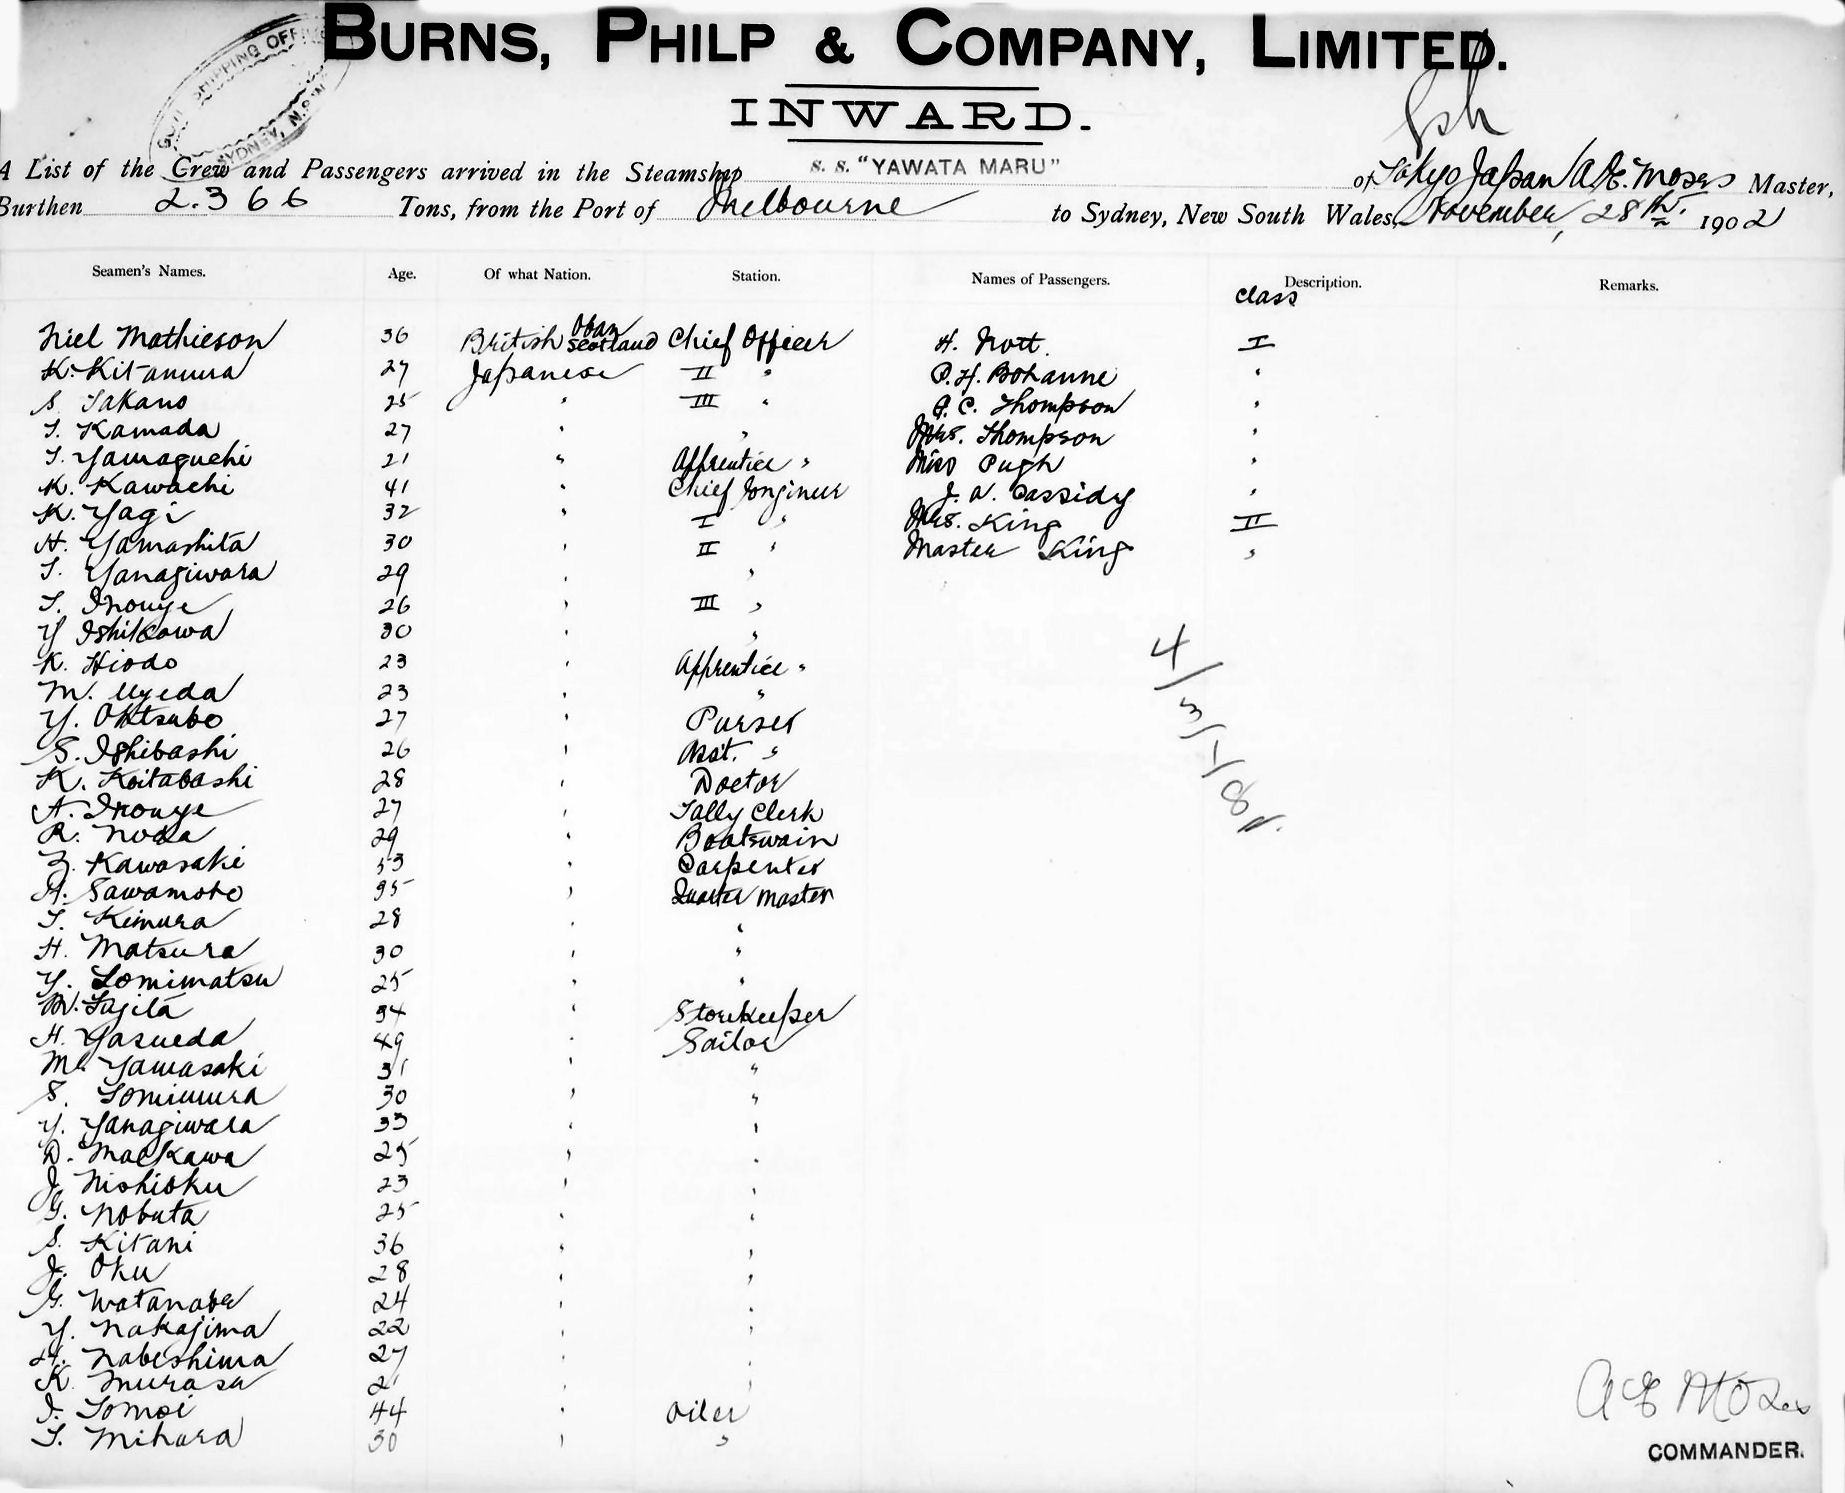 BURNS, PHILP & COMPANY, LIMITED.
INWARD.
SHIPPING OFFICE
SYDNEY, N.S.W.
A List of the Crew and Passengers arrived in the Steamship S. S. "YAWATA MARU" of Tokyo Japan A. E. Moses Master,
Burthen 2366 Tons, from the Port of Melbourne to Sydney, New South Wales, November, 28th. 1902
Seamen's Names. Age. Of what Nation. Station. Names of Passengers. Description. Remarks.
class
Niel Mathieson 36 British Oban Scotland Chief Officer H. Nott. I
K. Kitamura 27 Japanese II " P. H. Bohanne "
S. Takano 25 " III " A. C. Thompson "
T. Kamada 27 " " Mrs. Thompson "
T. Yamaguchi 21 " Apprentice " Miss Pugh "
K. Kawachi 41 " Chief Engineer J. A. Cassidy "
K. Yagi 32 " I " Mrs. King II
H. Yamashita 30 " II " Master King "
T. Yanagiwara 29 " "
T. Inouye 26 " III "
Y Ishikawa 30 " "
K. Hiodo 23 " Apprentice "
M. Uyeda 23 " "
Y. Ohtsubo 27 " Purser
S. Ishibashi 26 " Asst. "
K. Koitabashi 28 " Doctor
A. Inouye 27 " Tally Clerk
R. Noda 29 " Boatswain
Z. Kawasaki 53 " Carpenter
H. Sawamoto 35 " Quarter Master
T. Kimura 28 " "
H. Matsura 30 " "
Y. Tomimatsu 25 " "
M. Fujita 34 " Storekeeper
H. Yasueda 49 " Sailor
M. Yamasaki 31 " "
S. Tomimura 30 " "
Y. Yanagiwara 33 " "
D. Maekawa 25 " "
J. Nishioku 23 " "
G. Nobuta 25 " "
S. Kitani 36 " "
J. Oku 28 " "
G. Watanabe 24 " "
Y. Nakajima 22 " "
H. Nabeshima 27 " "
K. Murasa 21 " "
I. Tomoi 44 " Oiler
T. Mihara 30 " "
4/3/-/81.
A E Moses
COMMANDER.